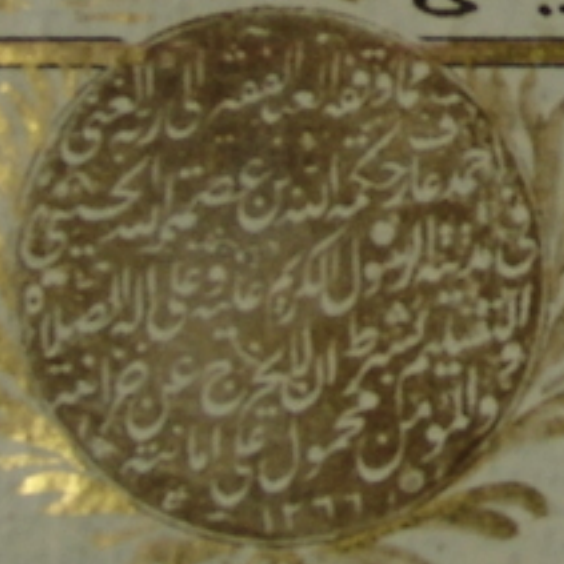 مما وقفه العبد الفقير الى ربه الغني
احمد عارف حكمة الله بن عصمة الله الحسيني
في مدينة الرسول الكريم عليه وعلى اله الصلاة
والتسليم بشرط ان لا يخرج عن خزانته
والمؤمن محمول على امانته
١٢٦٦